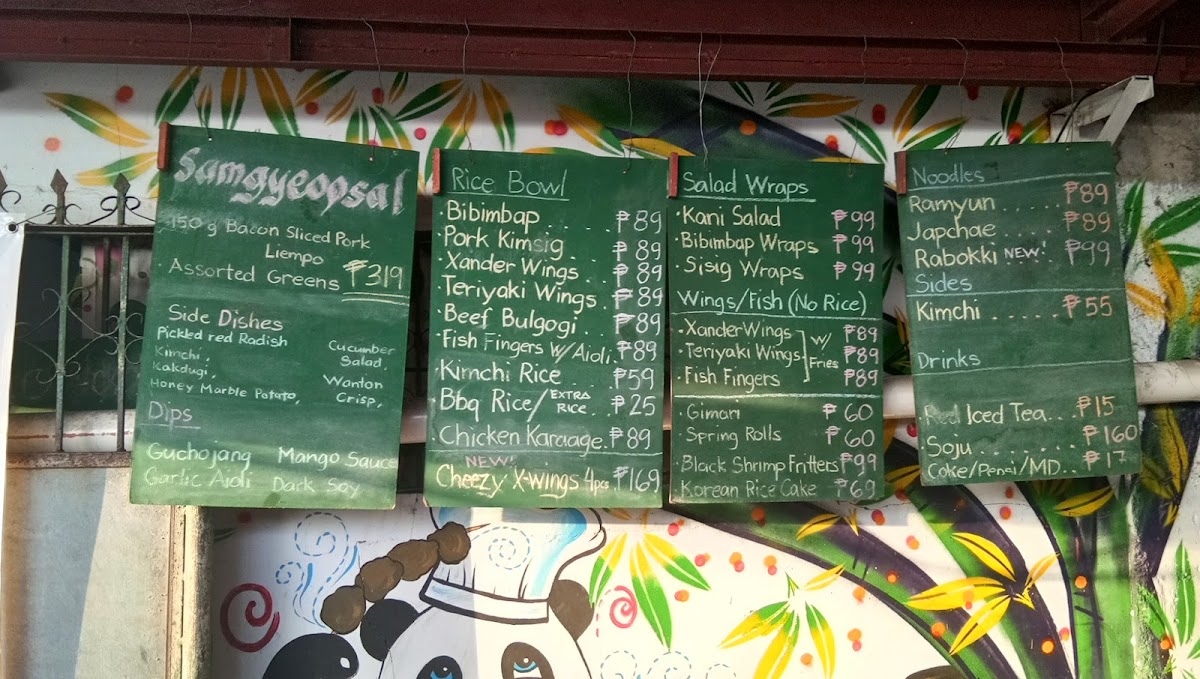 Samgyeopsal
150 g Bacon Sliced Pork
Liempo
Assorted Greens ₱319
Side Dishes
Pickled red Radish
Kimchi,
Kakdugi,
Honey Marble Potato,
Cucumber
Salad,
Wanton
Crisp,
Dips
Guchojang Mango Sauce
Garlic Aioli Dark Soy
Rice Bowl
· Bibimbap ₱89
· Pork Kimsig ₱89
· Xander Wings ₱89
· Teriyaki Wings ₱89
· Beef Bulgogi .. ₱89
· Fish Fingers w/ Aioli. ₱89
· Kimchi Rice ... ₱59
· Bbq Rice/EXTRA RICE.. ₱25
· Chicken Karaage. ₱89
NEW!
Cheezy X-wings 4pcs ₱169
Salad Wraps
· Kani Salad ₱99
· Bibimbap Wraps ₱99
· Sisig Wraps ₱99
Wings/Fish (No Rice)
· Xander Wings ₱89
· Teriyaki Wings w/ Fries ₱89
· Fish Fingers ₱89
· Gimari ₱60
· Spring Rolls ₱60
· Black Shrimp Fritters ₱99
· Korean Rice Cake ₱69
Noodles
Ramyun ..... ₱89
Japchae ..... ₱89
Rabokki NEW! ₱99
Sides
Kimchi ...... ₱55
Drinks
Red Iced Tea... ₱15
Soju ....... ₱160
Coke/Pepsi/MD.. ₱17